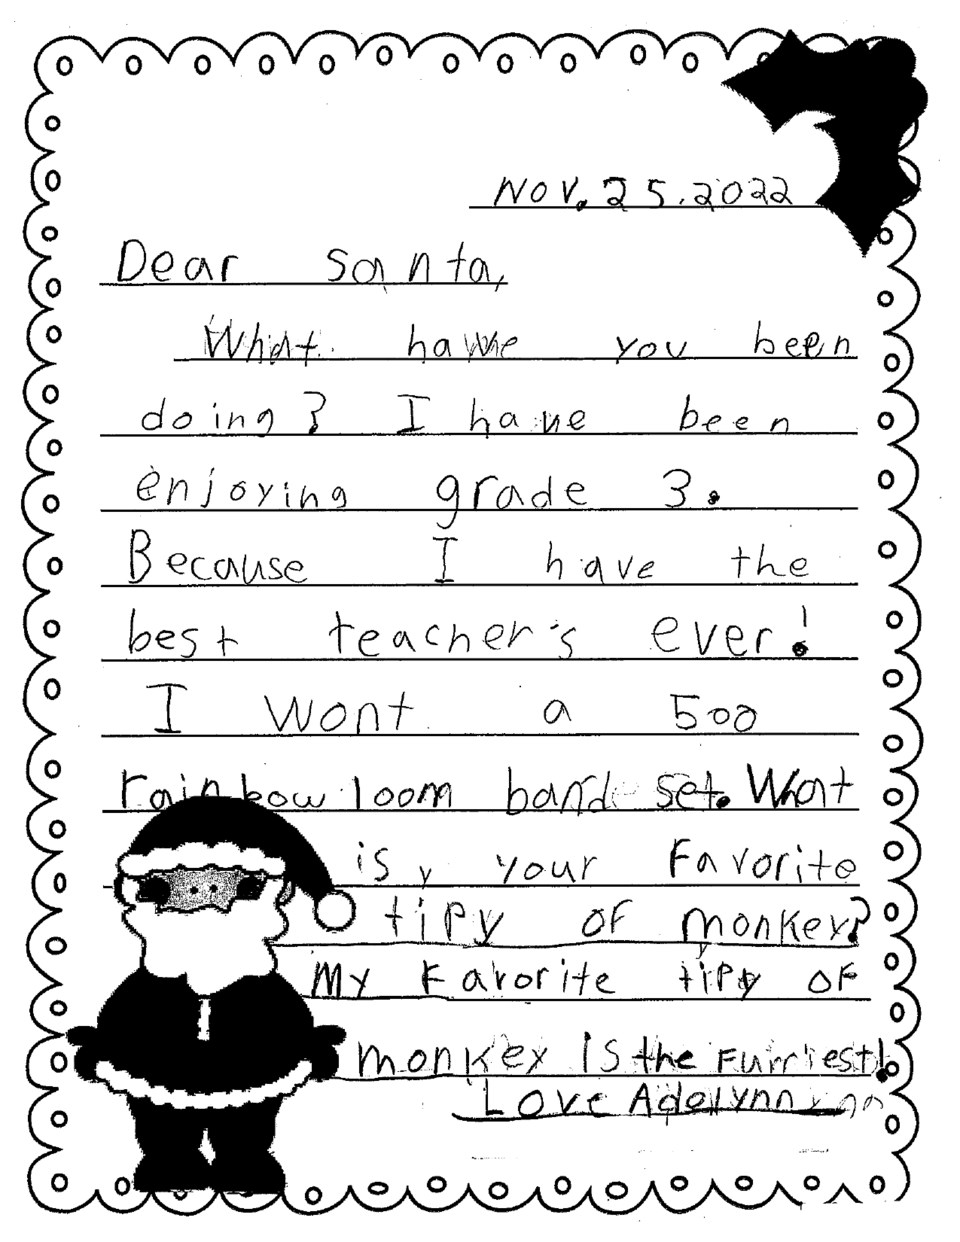 Nov. 25. 2022
Dear Santa,
What have you been
doing? I have been
enjoying grade 3.
Because I have the
best teacher's ever!
I Wont a 500
rainbow loom band set. What
is your Favorite
tipy of monkey?
My Favorite tipy of
monkey is the Furriest!
Love Adelynn